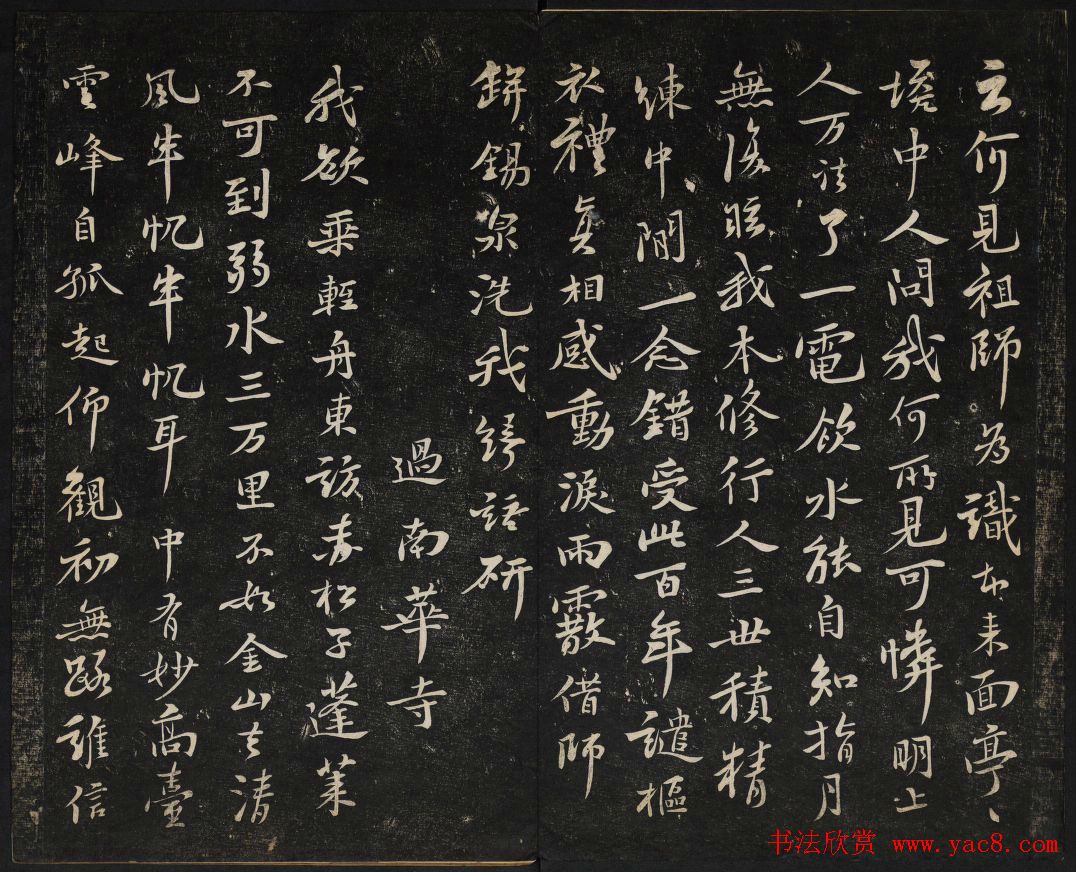 云何見祖師為識本来面亭〻
墖中人問我何所見可憐明上
人万法了一電飲水能自知指月
無復眩我本修行人三世積精
練中間一念錯受此百年譴樞
衣禮真相感動淚雨霰借師
鉼錫泉洗我綺語研
過南華寺
我欲乗軽舟東訪赤松子蓬莱
不可到弱水三万里不如金山去清
風半帆半帆耳中有妙高臺
雲峰自孤起仰觀初無路誰信
书法欣赏 www.yac8.com